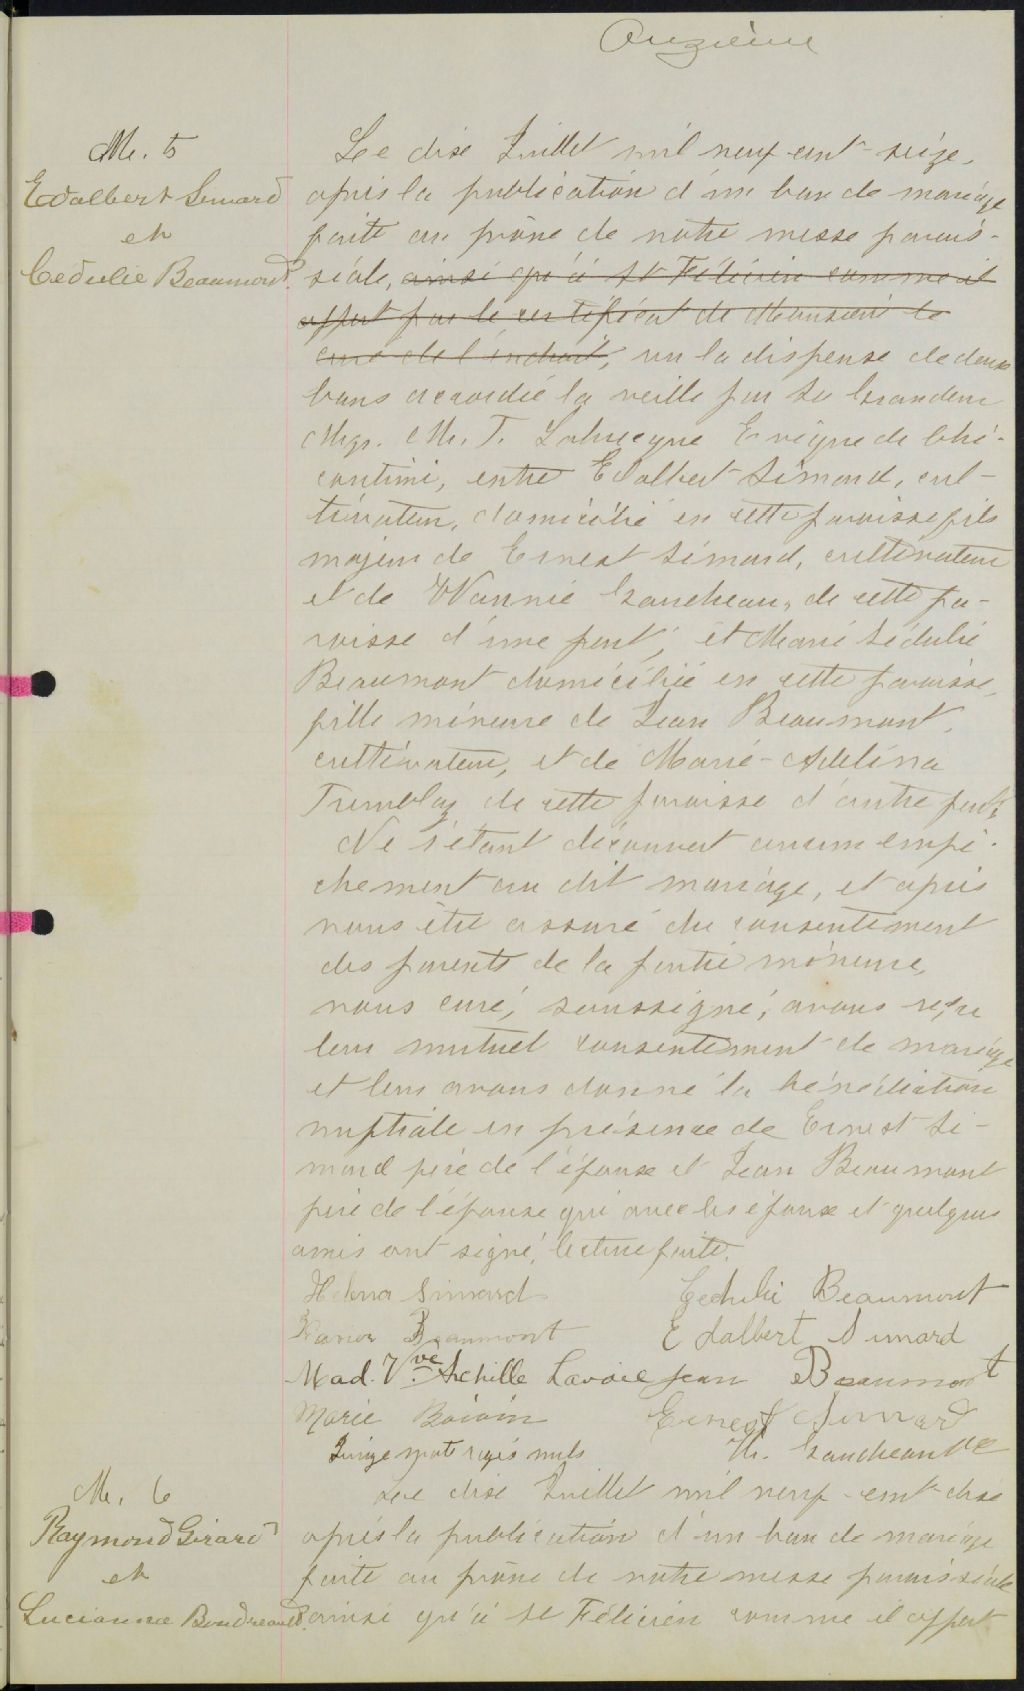 Onzième
M. 5
Edalbert Simard
et
Cédulie Beaumont.
Le dix Juillet mil neuf cent-seize,
après la publication d'un ban de mariage
faite au prône de notre messe parois-
siale, ainsi qu'à St Félicien comme il
appert par le certificat de Monsieur le
curé de l'endroit, vu la dispense de deux
bans accordée la veille par Sa Grandeur
Mgr. M. T. Labrecque Evêque de Chi-
coutimi, entre Edalbert Simard, cul-
tivateur, domicilié en cette paroisse fils
majeur de Ernest Simard, cultivateur
et de Wannie Gaucheau, de cette pa-
roisse d'une part; et Marie Sédulie
Beaumont domiciliée en cette paroisse,
fille mineure de Jean Beaumont,
cultivateur, et de Marie-Adelina
Tremblay de cette paroisse d'autre part;
Ne s'étant découvert aucun empê-
chement au dit mariage, et après
nous être assuré du consentement
des parents de la partie mineure,
nous curé, soussigné, avons reçu
leur mutuel consentement de mariage
et leur avons donné la bénédiction
nuptiale en présence de Ernest Si-
mard père de l'époux et Jean Beaumont
père de l'épouse qui avec les époux et quelques
amis ont signé, lecture faite.
Helena Simard Cedulie Beaumont
Beaumont Edalbert Simard
Mad. Vve. Achille Lavoie Jean Beaumont
Marie Boivin Ernest Simard
Quinze mots rayés nuls Gaucheau Ptre
M. 6
Raymond Girard
et
Lucianna Boudreault.
Le dix Juillet mil neuf-cent-dix
après la publication d'un ban de mariage
faite au prône de notre messe paroissiale
ainsi qu'à St Félicien comme il appert